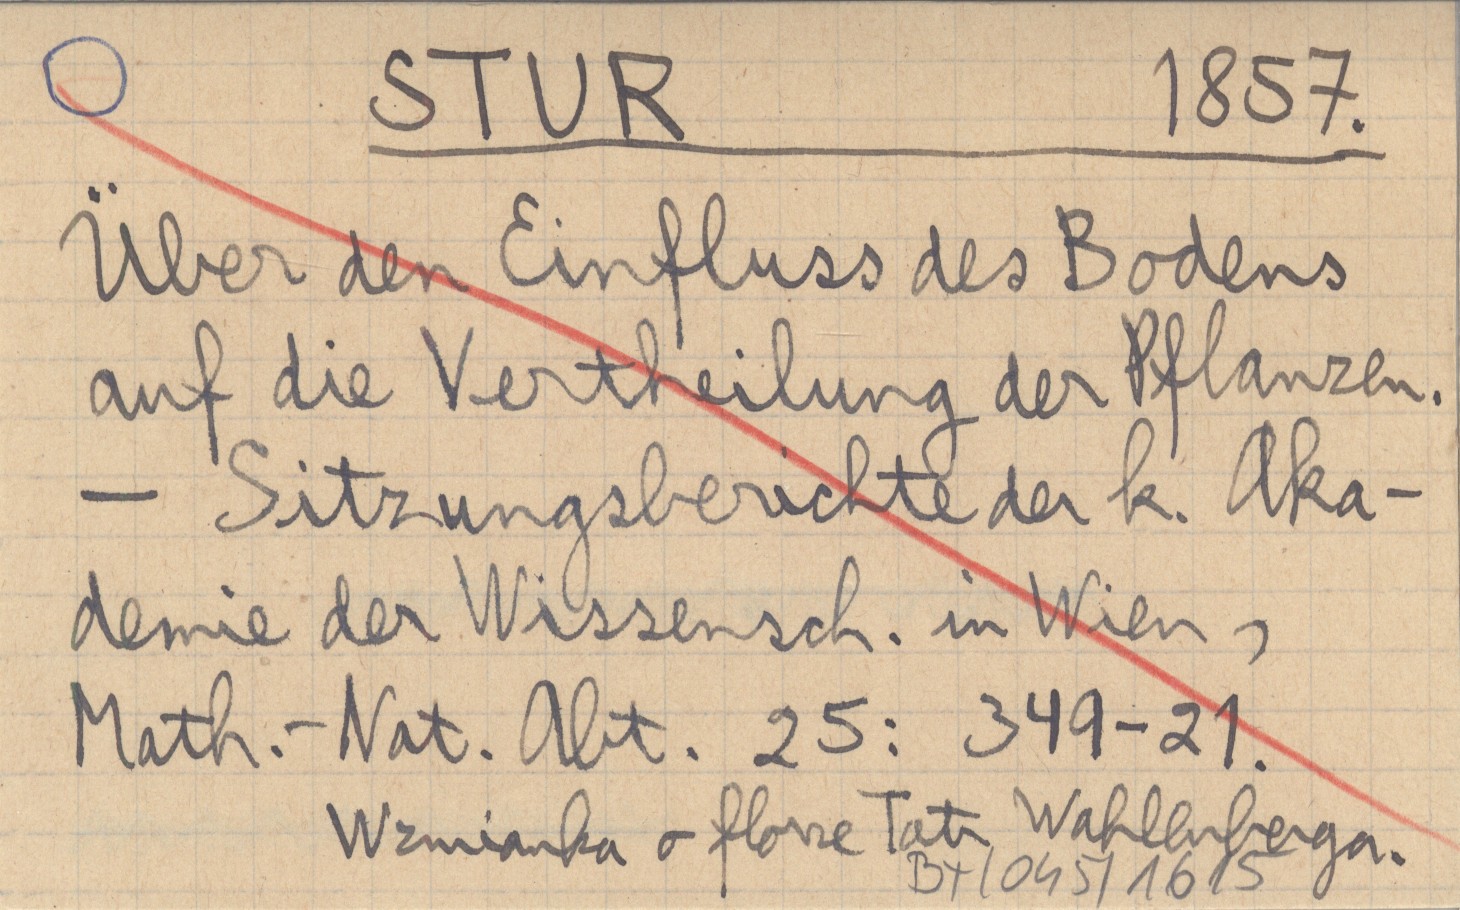 STUR 1857.
Über den Einfluss des Bodens
auf die Vertheilung der Pflanzen.
— Sitzungsberichte der k. Aka-
demie der Wissensch. in Wien,
Math.-Nat. Abt. 25: 349-21.
Wzmianka o florze Tatr Wahlenberga.
B+/045/1615